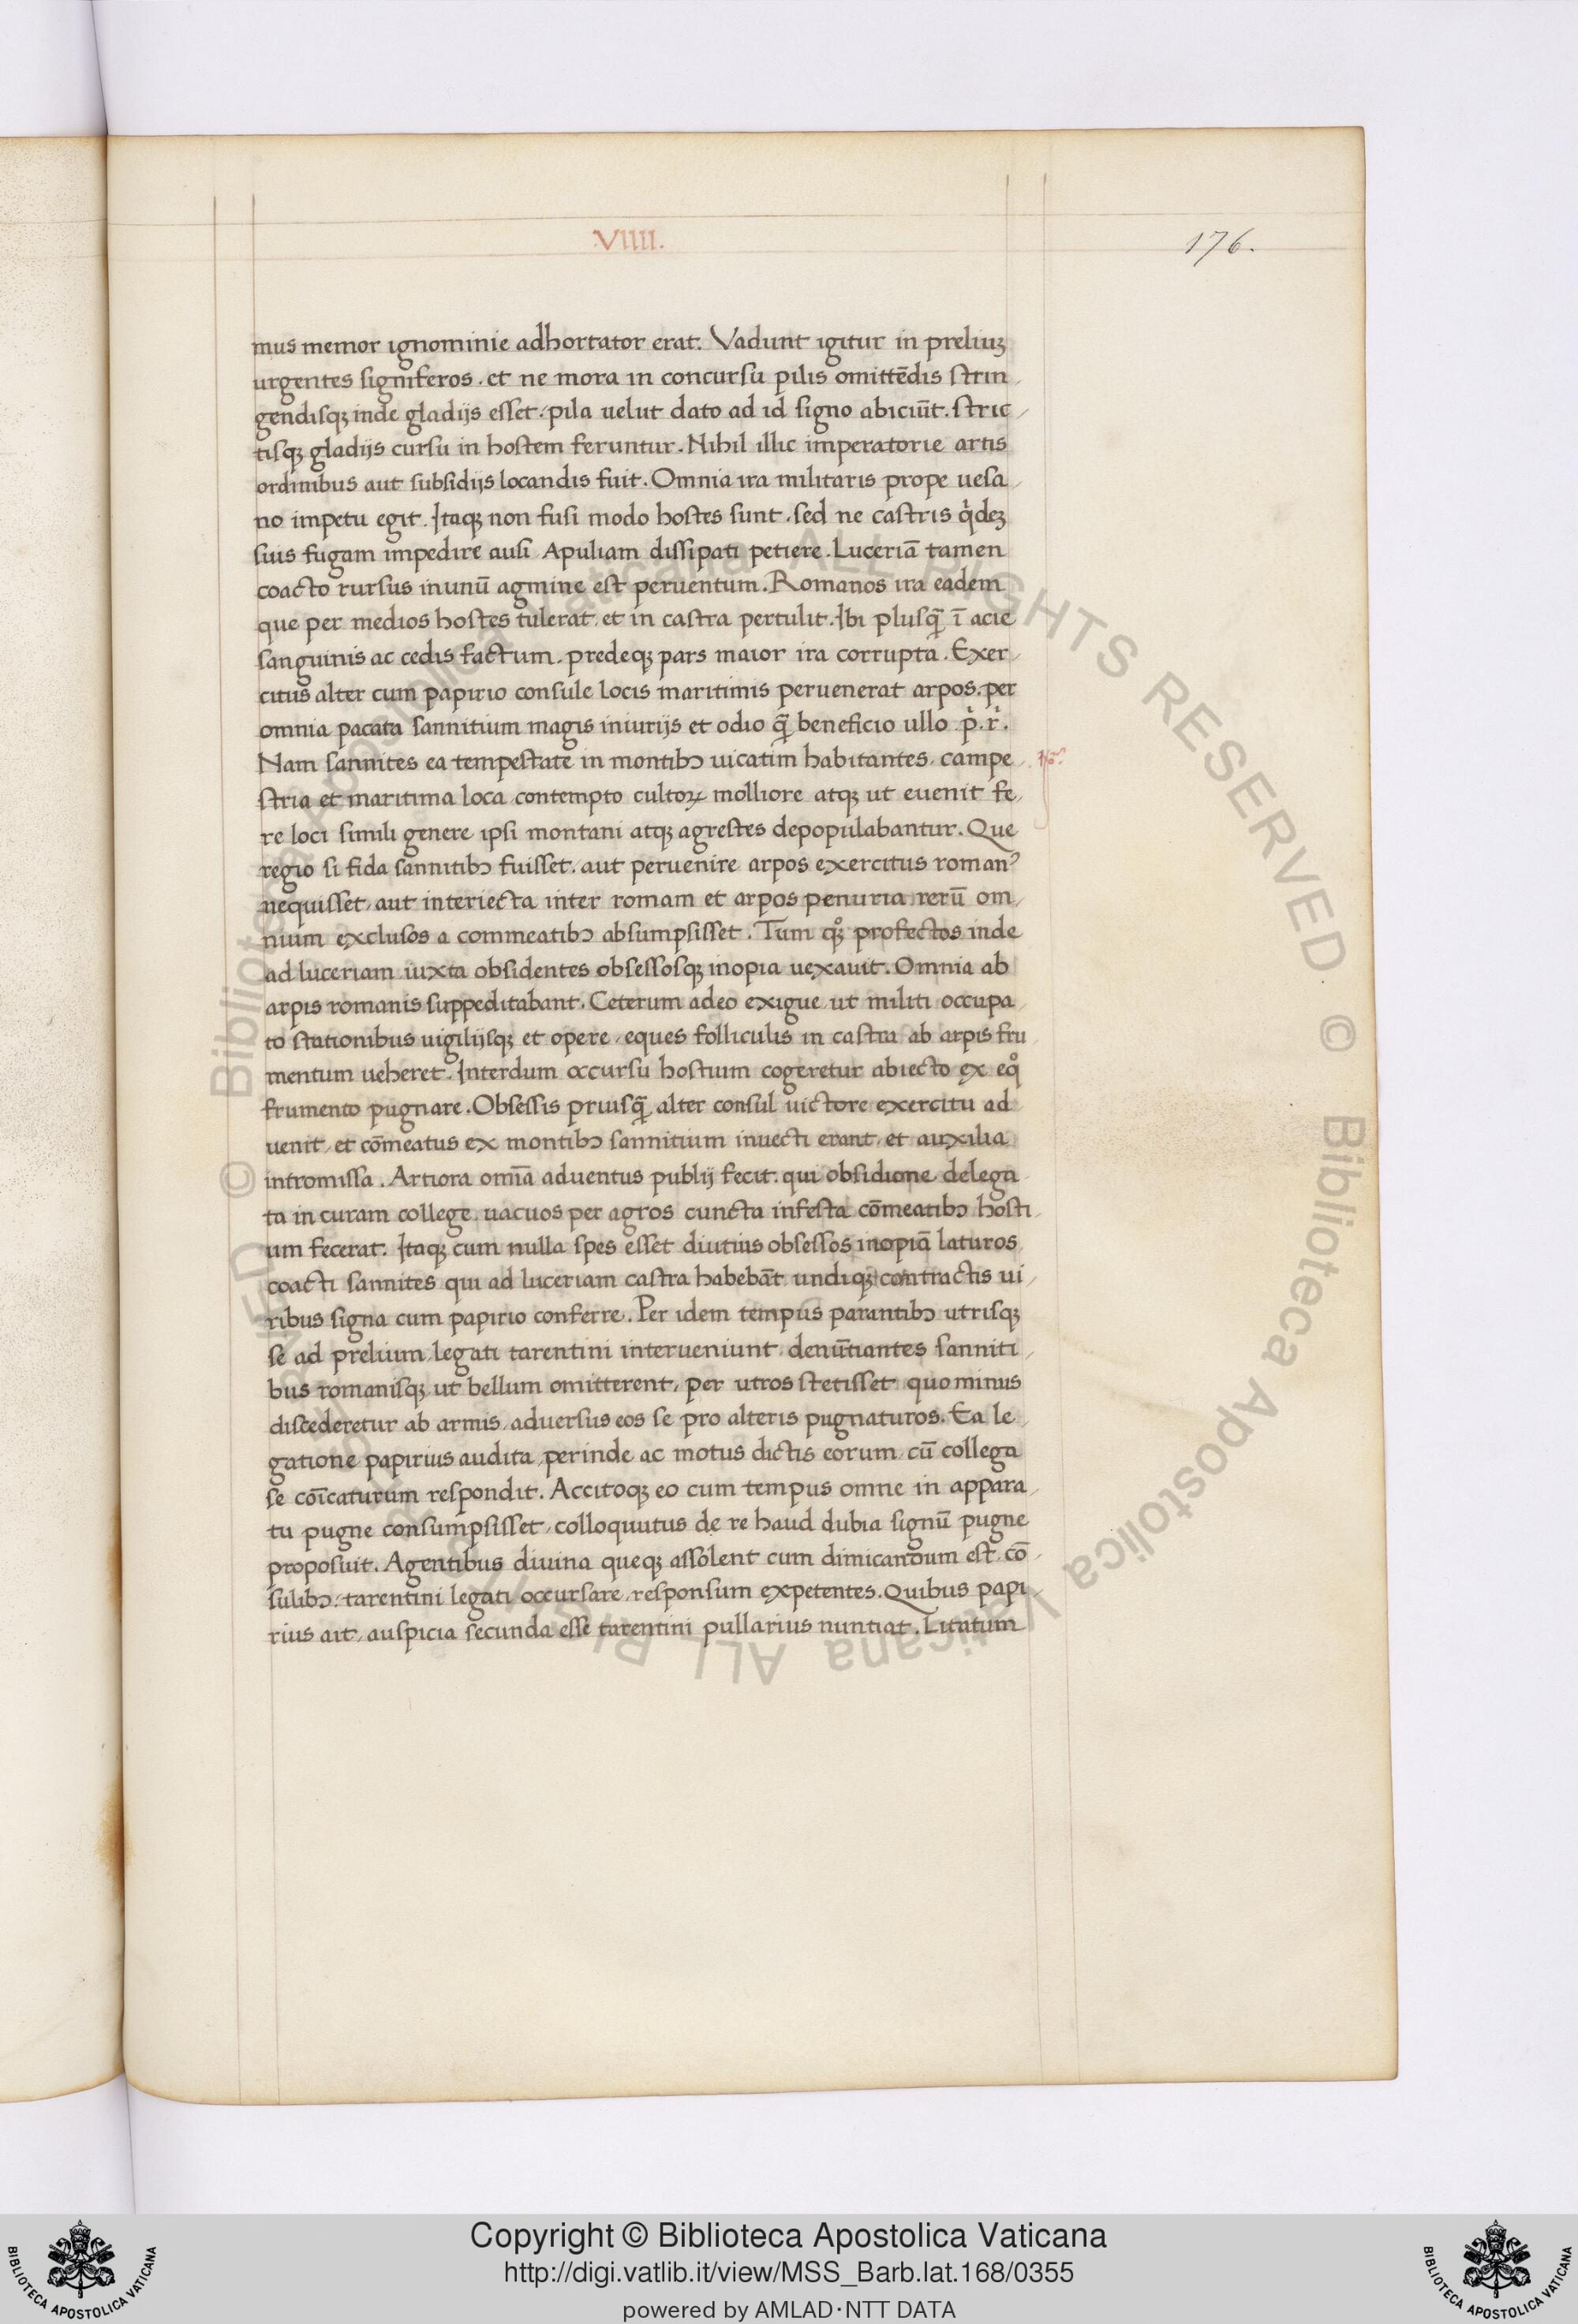 VIIII.
176.
mus memor ignominie adhortator erat. Vadunt igitur in preliuꝫ
urgentes signiferos. et ne mora in concursu pilis omittēdis strin
gendisqꝫ inde gladijs esset. pila uelut dato ad id signo abiciūt. stric
tisqꝫ gladijs cursu in hostem feruntur. Nihil illic imperatorie artis
ordinibus aut subsidijs locandis fuit. Omnia ira militaris prope uesa
no impetu egit. Itaqꝫ non fusi modo hostes sunt. sed ne castris q̇deꝫ
suis fugam impedire ausi Apuliam dissipati petiere. Luceriā tamen
coacto rursus inunū agmine est peruentum. Romanos ira eadem
que per medios hostes tulerat. et in castra pertulit. Ibi plusq̄ ī acie
sanguinis ac cedis factum. predeqꝫ pars maior ira corrupta. Exer
citus alter cum papirio consule locis maritimis peruenerat arpos. per
omnia pacata sannitium magis iniurijs et odio q̄ beneficio ullo .p̓.r̓.
Nam sannites ea tempestate in montibꝰ uicatim habitantes. campe
stria et maritima loca contempto cultoꝝ molliore atqꝫ ut euenit fe
re loci simili genere ipsi montani atqꝫ agrestes depopulabantur. Que
regio si fida sannitibꝰ fuisset. aut peruenire arpos exercitus romanꝰ
nequisset, aut interiecta inter romam et arpos penuria rerū om
nium exclusos a commeatibꝰ absumpsisset. Tum qͦꝫ profectos inde
ad luceriam iuxta obsidentes obsessosqꝫ inopia uexauit. Omnia ab
arpis romanis suppeditabant. Ceterum adeo exigue ut militi occupa
to stationibus uigilijsqꝫ et opere, eques folliculis in castra ab arpis fru
mentum ueheret. Interdum occursu hostium cogeretur abiecto ex eqͦ
frumento pugnare. Obsessis priusq̄ alter consul uictore exercitu ad
uenit, et cōmeatus ex montibꝰ sannitium inuecti erant, et auxilia
intromissa. Artiora omīa aduentus publij fecit. qui obsidione delega
ta in curam college, uacuos per agros cuncta infesta cōmeatibꝰ hosti
um fecerat. Itaqꝫ cum nulla spes esset diutius obsessos inopiā laturos
coacti sannites qui ad luceriam castra habebāt undiqꝫ contractis ui
ribus signa cum papirio conferre. Per idem tempus parantibꝰ utrisqꝫ
se ad prelium legati tarentini interueniunt. denūtiantes sanniti
bus romanisqꝫ ut bellum omitterent, per utros stetisset quominus
discederetur ab armis, aduersus eos se pro alteris pugnaturos. Ea le
gatione papirius audita, perinde ac motus dictis eorum cū collega
se cōicaturum respondit. Accitoqꝫ eo cum tempus omne in appara
tu pugne consumpsisset, colloquutus de re haud dubia signū pugne
proposuit. Agentibus diuina queqꝫ assolent cum dimicandum est. cō
sulibꝰ. tarentini legati occursare, responsum expetentes. Quibus papi
rius ait, auspicia secunda esse tarentini pullarius nuntiat. Litatum
© Biblioteca Apostolica Vaticana ALL RIGHTS RESERVED
Copyright © Biblioteca Apostolica Vaticana
http://digi.vatlib.it/view/MSS_Barb.lat.168/0355
powered by AMLAD·NTT DATA
BIBLIOTECA APOSTOLICA VATICANA
BIBLIOTECA APOSTOLICA VATICANA